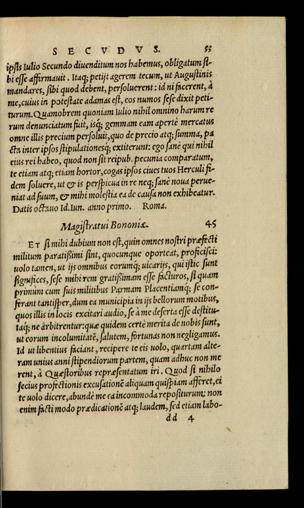 SECVDVS. 55
ipsis Iulio Secundo diuenditum nos habemus, obligatum si-
bi esse affirmauit. Itaq; petijt agerem tecum, ut Augustinis
mandares, sibi quod debent, persoluerent: id ni facerent, à
me, cuius in potestate adamas est, eos numos sese dixit peti-
turum. Quamobrem quoniam Iulio nihil omnino harum re
rum denunciatum fuit, isq; gemmam eam apertè mercatus
omne illis precium persoluit, quo de precio atq; summa, pa
cta inter ipsos stipulationesq; extiterunt: ego sanè qui nihil
eius rei habeo, quod non sit reipub. pecunia comparatum,
te etiam atq; etiam hortor, cogas ipsos ciues tuos Herculi fi-
dem soluere, ut & is perspicua in re neq; sanè noua perue-
niat ad suum, & mihi molestia ea de causa non exhibeatur.
Datis octauo Id. Iun. anno primo. Roma.
Magistratui Bononiæ. 45
Et si mihi dubium non est, quin omnes nostri præfecti
militum paratissimi sint, quocunque oporteat, proficisci:
uolo tamen, ut ijs omnibus eorumq; uicarijs, qui istic sunt
significes, sese mihi rem gratissimam esse facturos, si quam
primum cum suis militibus Parmam Placentiamq; se con-
ferant tantisper, dum ea municipia in ijs bellorum motibus,
quos illis in locis excitari audio, se à me deserta esse destitu-
taq; ne arbitrentur: quæ quidem certè merita de nobis sunt,
ut eorum incolumitatē, salutem, fortunas non negligamus.
Id ut libentius faciant, recipere te eis uolo, quartam alte-
ram unius anni stipendiorum partem, quam adhuc non me
rent, à Quæstoribus repræsentatum iri. Quod si nihilo
secius profectionis excusationē aliquam quispiam afferet, ei
te uolo dicere, abundè me ea incommoda repositurum: non
enim facti modo prædicationē atq; laudem, sed etiam labo-
dd 4